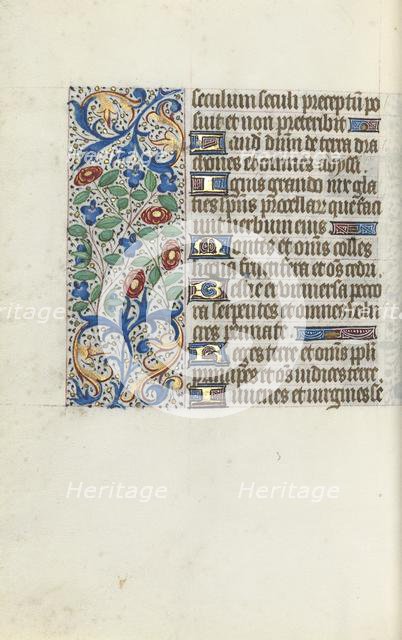 seculum seculi preceptū po
suit et non preteribit
Laud dūm de terra dra
chones et omnes abyssi
Ignis grando nix gla
cies sp̄us procellar̄ que faci
unt verbum eius
Montes et om̄s colles
ligna fructifera et om̄s cedri
Bestie et universa peco
ra serpentes et omnes
cres pennate
Reges terre et omīs ppli
principes et om̄s iudices terre
Iuvenes et virgines se
Heritage
Heritage
Heritage
Heritage